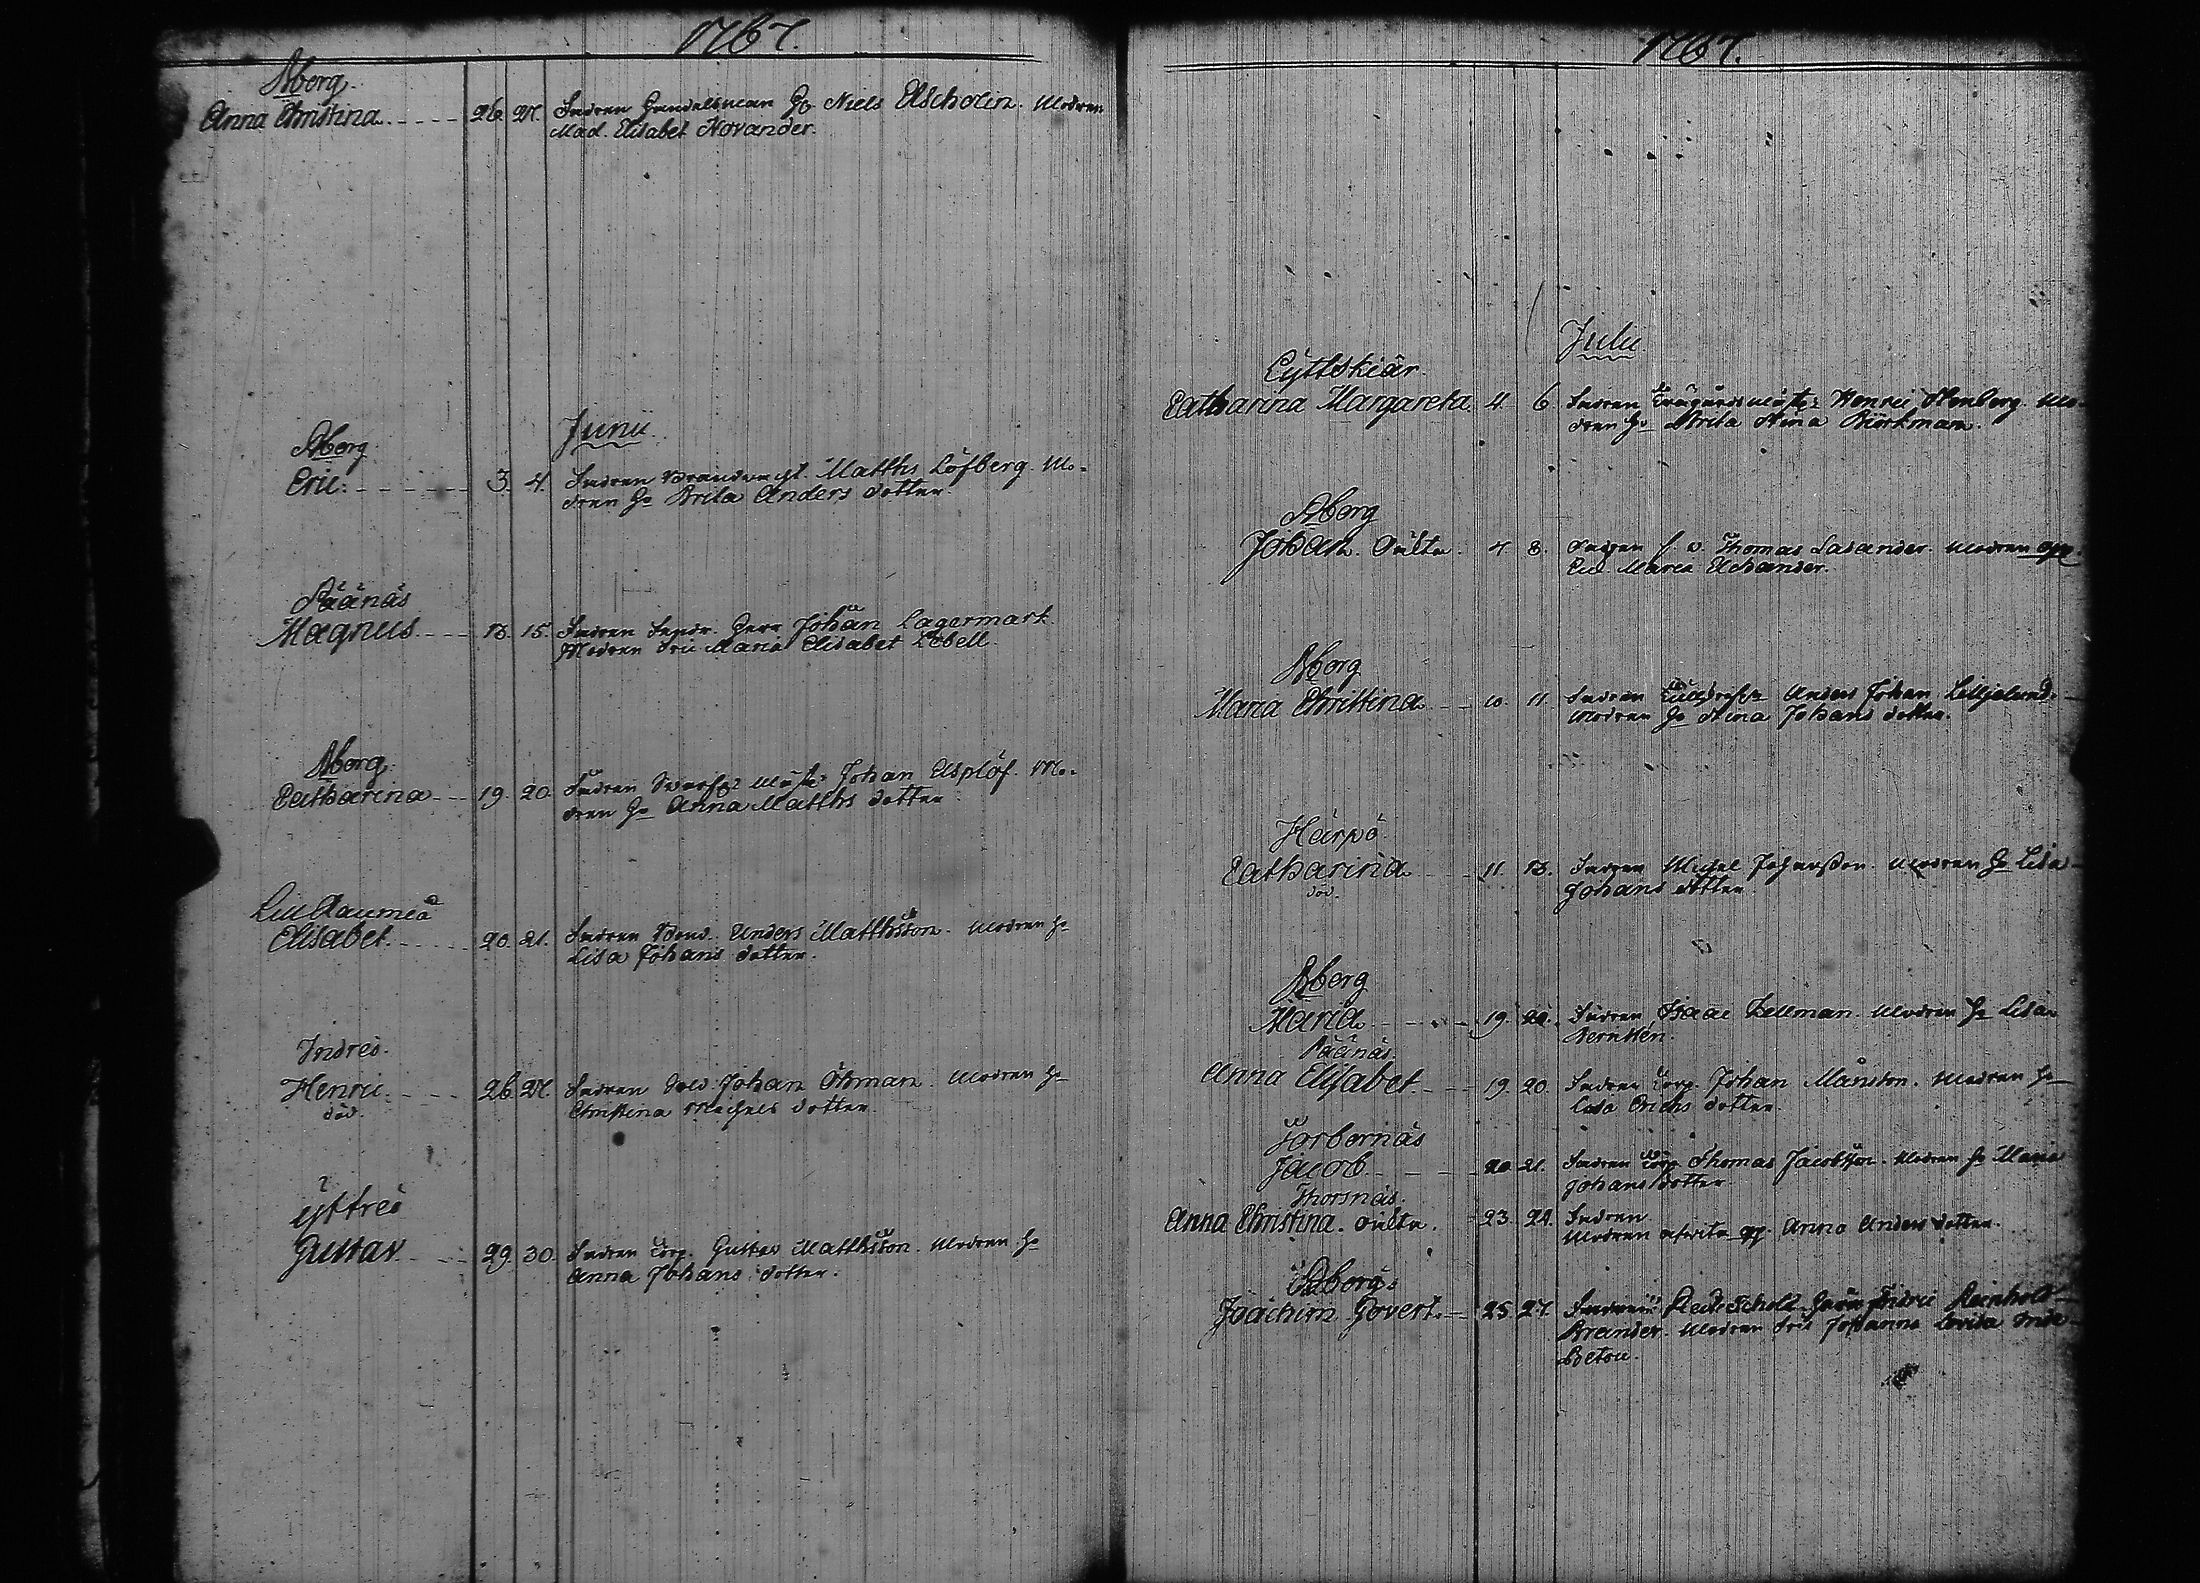 1767.
Aberg.
Anna Christina 26. 27. Fadren Handelsman Hr Niels Elscholin. Modren
Mad. Elisabet Novander.
Junii
Aberg
Eric. 3. 4. Fadren Matths Löfberg. Mo-
dren H: Brita Anders dotter.
Päänäs
Magnus 13. 15. Fadren Herr Johan Lagermark
Modren Fru Maria Elisabet Lobell.
Aberg.
Catharina 19. 20. Fadren Johan Asplöf. Mo-
dren H: Anna Matths dotter
Lill Raumeå
Elisabet. 20. 21. Fadren Bond. Anders Matthsson. Modren H:
Lisa Johans dotter.
Indres.
Henric. 26. 27. Fadren Johan Öhman. Modren H:
död. Christina Michels dotter.
Yttres
Gustav 29. 30. Fadren Torp. Gustav Matthsson. Modren H:
Anna Johans dotter.
1767.
Julii
Lyttskiär.
Catharina Margareta 4. 6. Fadren Henric Stenberg. Mo-
dren H: Brita Stina Biörkman.
Aberg
Johan. oäkta. 7. 8. Fadren Thomas Lasander. Modren
Maria Elsander.
Aberg
Maria Christina 10. 11. Fadren Anders Johan Lilljelund.
Modren H: Stina Johans dotter.
Härpö.
Catharina 11. 13. Fadren Michel Johansson. Modren H: Lisa
död. Johans dotter
Aberg
Maria 19. 20. Fadren Isaac Zellman. Modren H: Lisa
Päänäs.
Anna Elisabet 19. 20. Fadren Torp. Johan Månsson. Modren H:
Lisa Erichs dotter.
Torbernäs
Jacob 20. 21. Fadren Torp. Thomas Jacobsson. Modren H: Maria
Johans dotter
Thorsnäs.
Anna Christina. oäkta. 23. 24. Fadren
Modren Anna Anders dotter.
Joachim Govert. 25. 27. Fadren Herr Fridric Reinhold
Brander. Modren Fru Johanna Lovisa